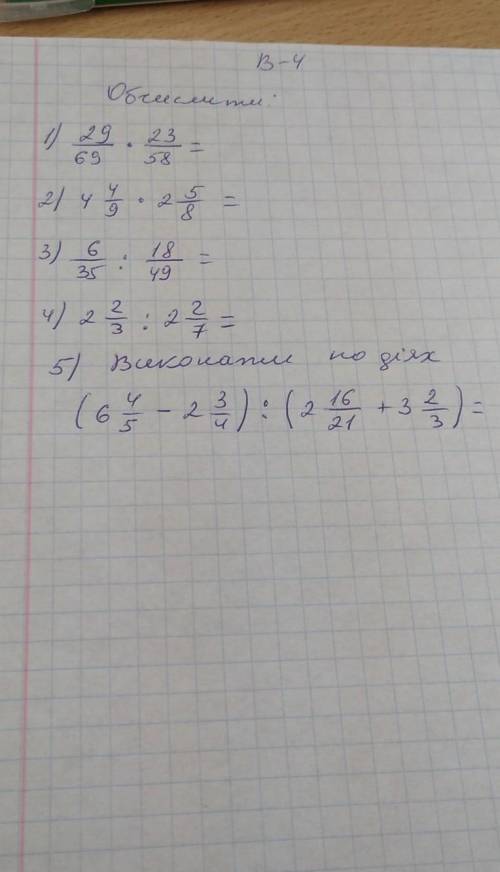 В-4
Обчислити:
1) 29/69 · 23/58 =
2) 4 4/9 · 2 5/8 =
3) 6/35 : 18/49 =
4) 2 2/3 : 2 2/7 =
5) Виконати по діях
(6 4/5 - 2 3/4) : (2 16/21 + 3 2/3) =